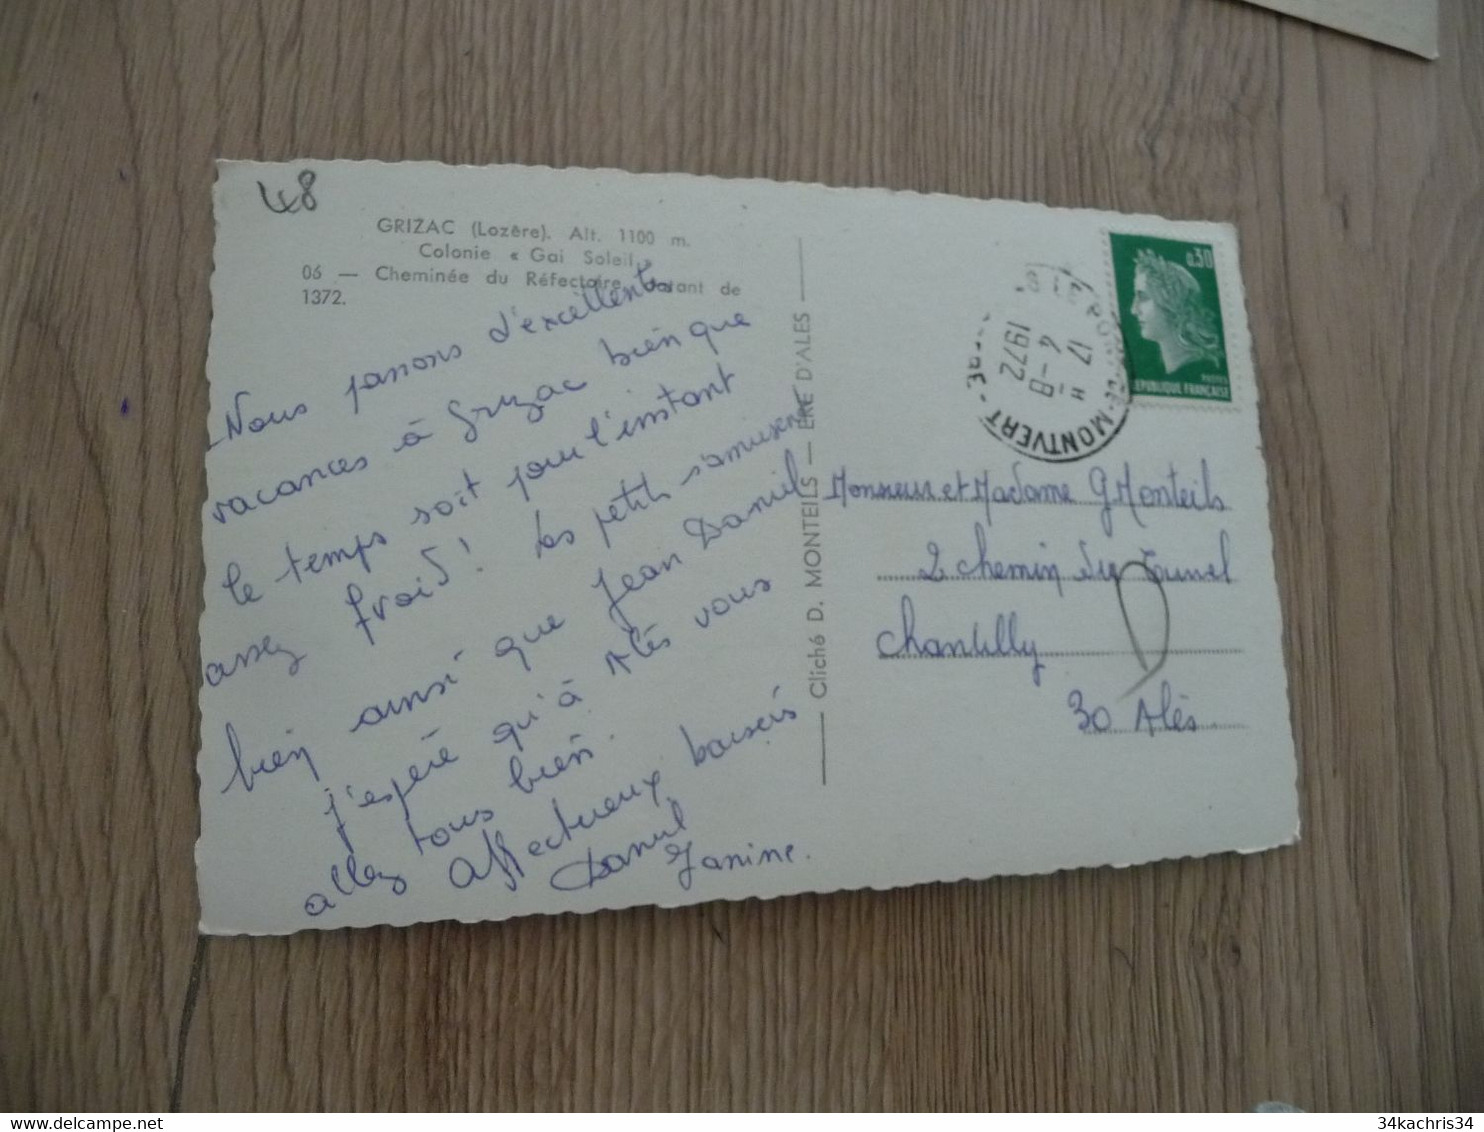 48
GRIZAC (Lozère). Alt. 1100 m.
Colonie « Gai Soleil »
06 — Cheminée du Réfectoire datant de
1372.
Nous passons d'excellentes
vacances à Grizac bien que
le temps soit pour l'instant
assez froid! Les petits s'amusent
bien ainsi que Jean Daniel
J'espère qu'à Alès vous
allez tous bien.
Affectueux baisers
Daniel
Janine.
Cliché D. MONTEILS — ERE D'ALES
17 H
4-8
1972
DE-MONTVERT
0,30
POSTES
REPUBLIQUE FRANÇAISE
Monsieur et Madame G Monteils
2 chemin du Tunnel
Chantilly
30 Alès
34kachris34
delcampe.net